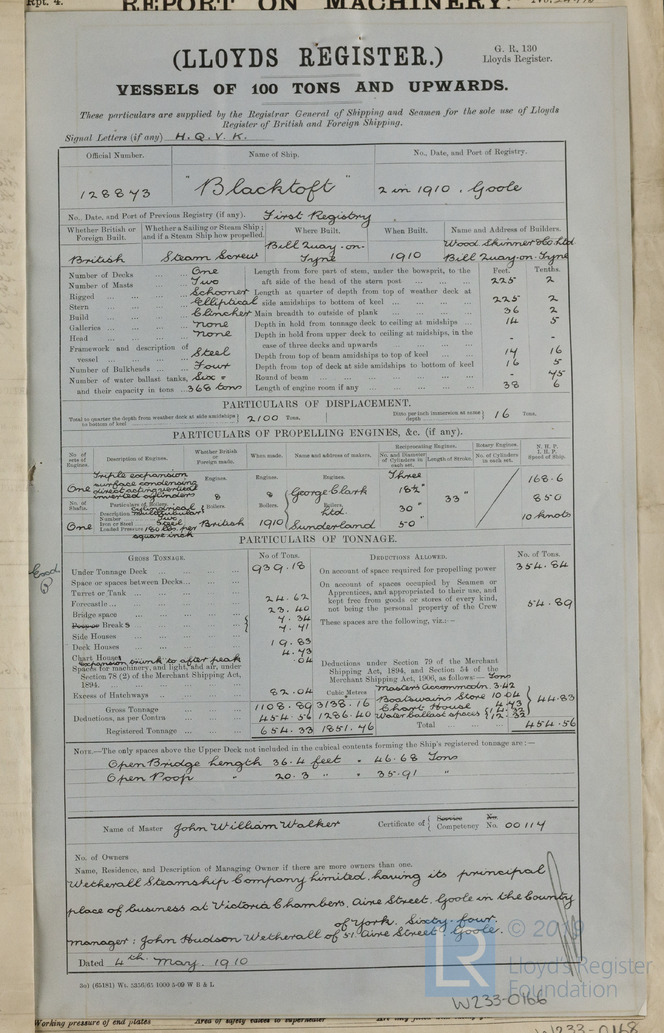 Rpt. 4.
REPORT ON MACHINERY.
(LLOYDS REGISTER.)
G. R. 130
Lloyds Register.
VESSELS OF 100 TONS AND UPWARDS.
These particulars are supplied by the Registrar General of Shipping and Seamen for the sole use of Lloyds
Register of British and Foreign Shipping.
Signal Letters (if any) H. Q. V. K.
Official Number. Name of Ship. No., Date, and Port of Registry.
128873 "Blacktoft" 2 in 1910. Goole
No., Date, and Port of Previous Registry (if any). First Registry
Whether British or Foreign Built. Whether a Sailing or Steam Ship; and if a Steam Ship how propelled. Where Built. When Built. Name and Address of Builders.
British Steam Screw Bill Quay-on-Tyne 1910 Wood Skinner & Co Ltd Bill Quay-on-Tyne
Feet. Tenths.
Number of Decks ... One Length from fore part of stem, under the bowsprit, to the
Number of Masts ... Two aft side of the head of the stern post ... 225 2
Rigged ... Schooner Length at quarter of depth from top of weather deck at
Stern ... Elliptical side amidships to bottom of keel ... 225 2
Build ... Clincher Main breadth to outside of plank ... 36 2
Galleries ... None Depth in hold from tonnage deck to ceiling at midships ... 14 5
Head ... None Depth in hold from upper deck to ceiling at midships, in the
case of three decks and upwards ... - -
Framework and description of vessel ... Steel Depth from top of beam amidships to top of keel ... 14 16
Number of Bulkheads ... Four Depth from top of deck at side amidships to bottom of keel 16 5
Number of water ballast tanks, Six Round of beam ... - 45
and their capacity in tons ... 368 tons Length of engine room if any ... 38 6
PARTICULARS OF DISPLACEMENT.
Total to quarter the depth from weather deck at side amidships to bottom of keel 2100 Tons. Ditto per inch immersion at same depth 16 Tons.
PARTICULARS OF PROPELLING ENGINES, &c. (if any).
No. of sets of Engines. Description of Engines. Whether British or Foreign made. When made. Name and address of makers. Reciprocating Engines. Rotary Engines. N. H. P. I. H. P. Speed of Ship.
No. and Diameter of Cylinders in each set. Length of Stroke. No. of Cylinders in each set.
One Triple expansion surface condensing direct acting vertical inverted cylinders Engines. B Engines. B Engines. George Clark Ltd. Sunderland Three 18½" 30" 50" 33" 168.6 850 10 knots
No. of Shafts. Particulars of Boilers. Boilers. Boilers. Boilers.
One Description Cylindrical Multitubular British 1910
Number Two
Iron or Steel Steel
Loaded Pressure 180 lbs. per square inch
PARTICULARS OF TONNAGE.
Gross Tonnage. No of Tons. Deductions Allowed. No. of Tons.
Under Tonnage Deck ... 939.18 On account of space required for propelling power 354.84
Space or spaces between Decks ... On account of spaces occupied by Seamen or
Turret or Tank ... Apprentices, and appropriated to their use, and
Forecastle ... 24.62 kept free from goods or stores of every kind,
Bridge space ... 23.40 not being the personal property of the Crew 54.89
Poop or Breaks ... 7.34 7.41 These spaces are the following, viz.:—
Side Houses ...
Deck Houses ... 19.83
Chart House ... 4.73
Expansion trunk to after peak .04 Deductions under Section 79 of the Merchant
Spaces for machinery, and light, and air, under Shipping Act, 1894, and Section 54 of the
Section 78 (2) of the Merchant Shipping Act, Merchant Shipping Act, 1906, as follows:— Tons
1894. Master's Accommodn. 3.42
Excess of Hatchways ... 82.04 Cubic Metres Boatswains Store 10.04
Gross Tonnage ... 1108.89 3138.16 Chart House 4.73 44.83
Deductions, as per Contra ... 454.56 1286.40 Water ballast spaces 14.32 12.32
Registered Tonnage ... 654.33 1851.76 Total ... 454.56
Note.—The only spaces above the Upper Deck not included in the cubical contents forming the Ship's registered tonnage are:—
Open Bridge Length 36.4 feet = 46.68 Tons
Open Poop " 20.3 " = 35.91 "
Name of Master John William Walker Certificate of Service Competency No. 00114
No. of Owners
Name, Residence, and Description of Managing Owner if there are more owners than one.
Wetherall Steamship Company Limited, having its principal
place of business at Victoria Chambers, Aire Street, Goole in the County
of York. Sixty-four.
Manager: John Hudson Wetherall of 51 Aire Street, Goole.
Dated 4th May 1910
5o) (65181) Wt. 5356/65 1000 5-09 W B & L
© 2019
LR
Lloyd's Register
Foundation
W233-0166
Working pressure of end plates Area of safety valves to superheater
W233-0168